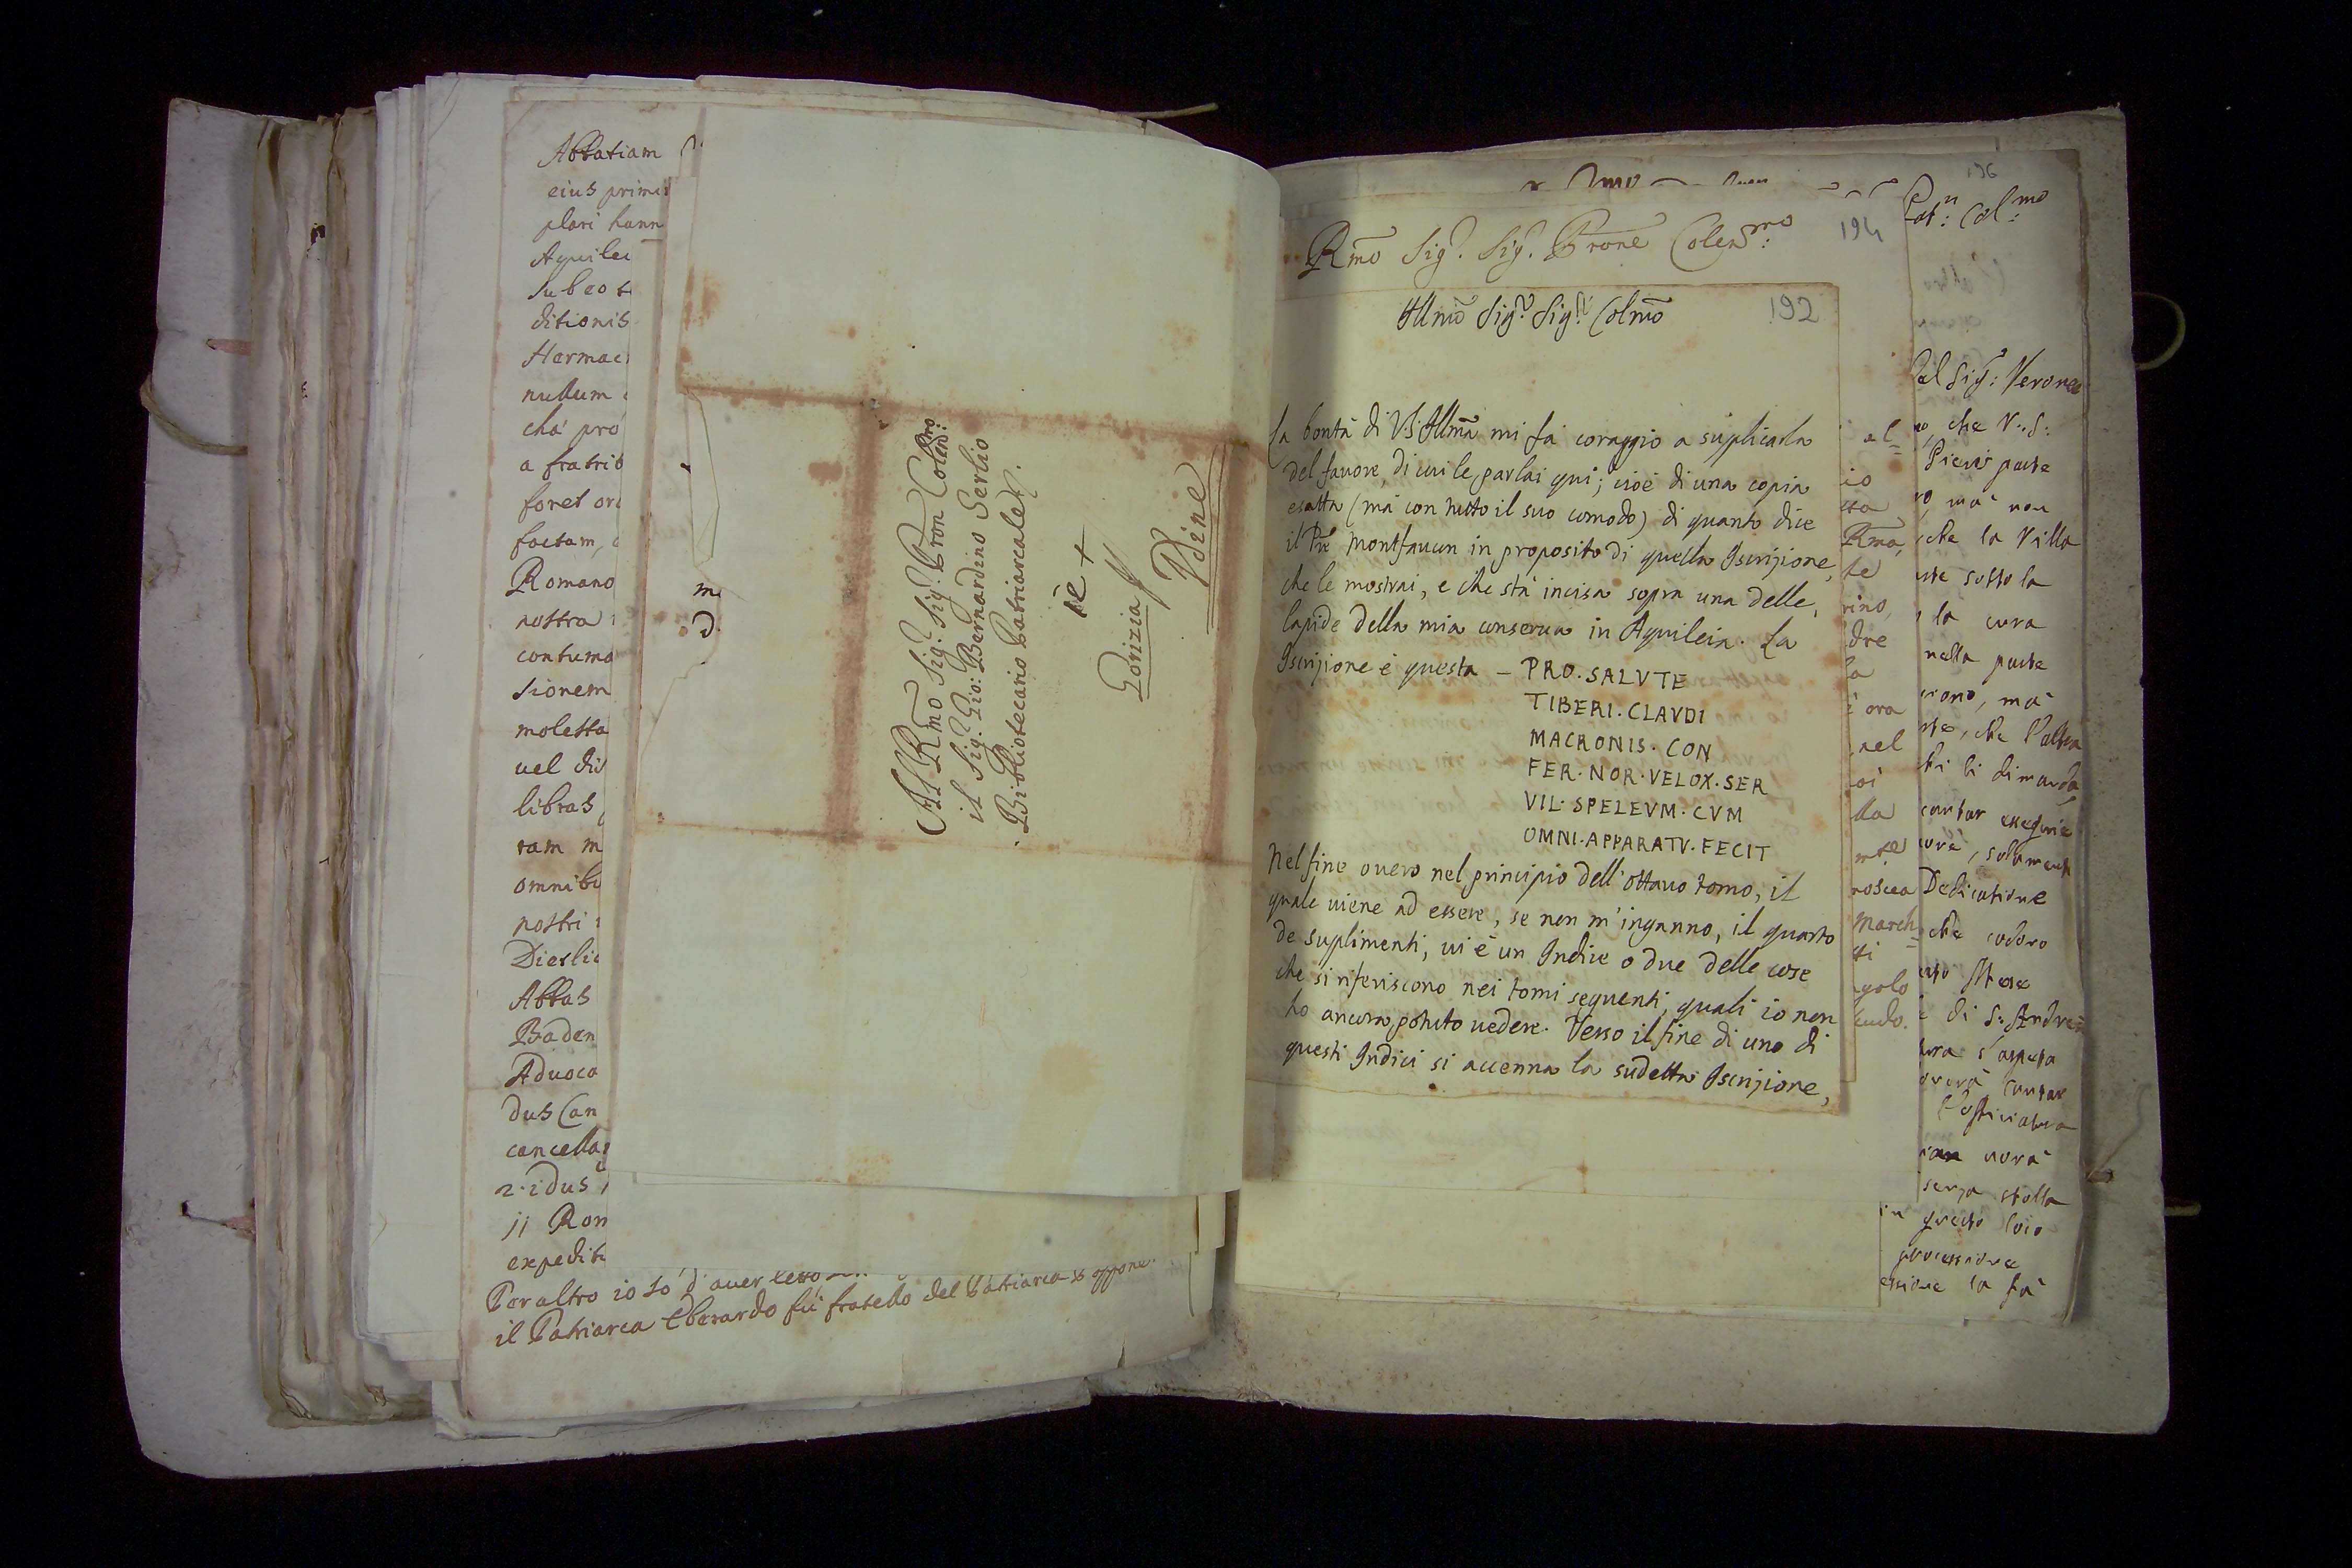 Abbatiam
eius prime
plari hann
Aquilei
sub eo
ditionis
Harmac
nullum
cha pro
a fratrib
foret
factam,
Romano
nostra
contuma
sionem
molesta
uel
libras
tam m
omnibu
nostri
Abbas
Baden
Aduoca
dus Can
cancella
2. idus
jj Rom
expedit
Per altro io sò d'auer letto
il Patriarca Eberardo fù fratello del Patriarca Poppone.
m
Al Rmo Sig. Sig. Pron Colend: mo
il Sig. Gio: Bernardino Serlio
Bibliotecario Patriarcale &.
Gorizia
Vdine
196
194
Rmo Sig. Sig. Prone Colen mo:
192
Illmo Sig. Sig. Colmo
La bontà di VS Illma mi fà coraggio a suplicarla
del fauore, di cui le parlai qui; cioè di una copia
esatta (mà con tutto il suo comodo) di quanto dice
il Pre Montfaucun in proposito di quella Iscrizione,
che le mostrai, e che stà incisa sopra una delle
lapide della mia conserua in Aquileia. La
Iscrizione è questa – PRO. SALVTE
TIBERI. CLAVDI
MACRONIS. CON
FER. NOR. VELOX. SER
VIL. SPELEVM. CVM
OMNI. APPARATV. FECIT
Nel fine ouero nel principio dell' ottauo tomo, il
quale uiene ad essere, se non m'inganno, il quarto
de suplimenti, ui è un Indice o due delle cose
che si riferiscono nei tomi seguenti, quali io non
ho ancora potuto uedere. Verso il fine di uno di
questi Indici si accenna la sudetta Iscrizione,
al=
io
sta
Rma,
te
rino,
dre
la
ora
nel
oi
lla
mte
noscea
March=
ti
golo
Pat:n Col:mo
Dal Sig: Verone
che V.S:
parte
mà non
che la Villa
sotto la
la cura
nella parte
mà
che l'altra
li dimanda,
cantar esequie
solamente
Dedicatione
che
di S: Andrea
s'aspeta
cantar
senza stolla
in questo
processione
la fà